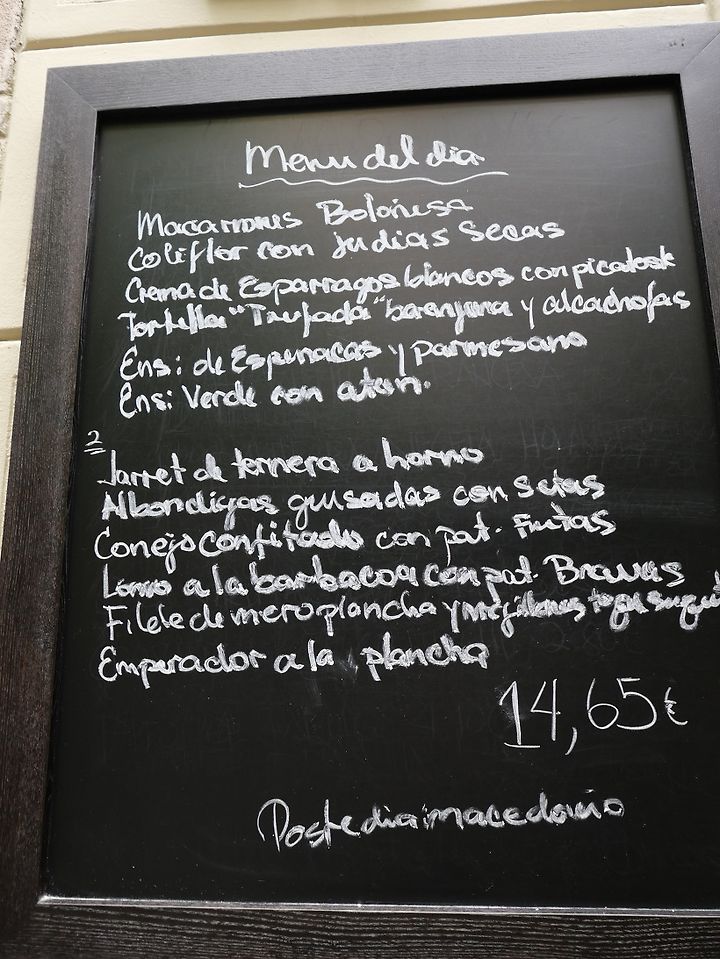 Menu del dia
Macarrones Boloñesa
Coliflor con judias Secas
Crema de Esparragos blancos con picatost
Tortilla "Trufada" barenjena y alcachofas
Ens: de Espinacas y parmesano
Ens: Verde con atun.
2
Jarret de ternera a horno
Albondigas guisadas con setas
Conejo confitado con pat. Fritas
Lomo a la barbacoa con pat. Bravas
Filete de mero plancha y mejillones
Emperador a la plancha
14,65€
Postedia: macedonia